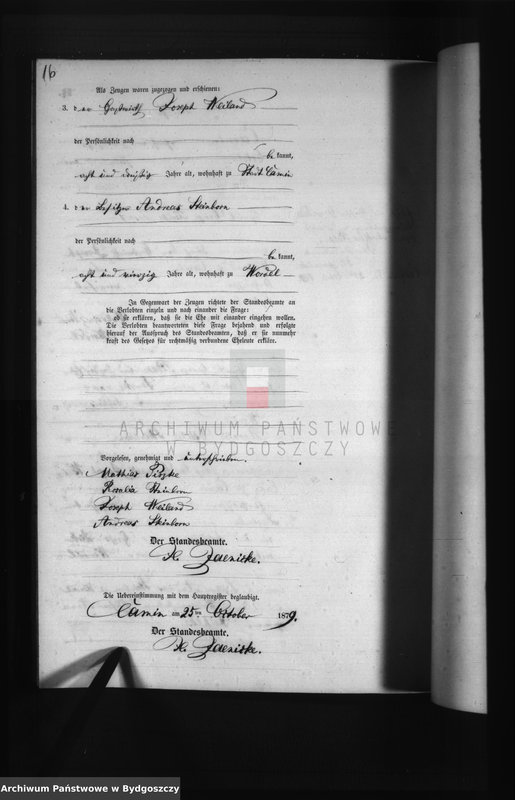 16
Als Zeugen waren zugezogen und erschienen:
3. der Gastwirth Joseph Weiland
der Persönlichkeit nach
be kannt,
acht und dreißig Jahre alt, wohnhaft zu Stadt Camin
4. der Besitzer Andreas Steinborn
der Persönlichkeit nach
be kannt,
acht und vierzig Jahre alt, wohnhaft zu
In Gegenwart der Zeugen richtete der Standesbeamte an
die Verlobten einzeln und nach einander die Frage:
ob sie erklären, daß sie die Ehe mit einander eingehen wollen.
Die Verlobten beantworteten diese Frage bejahend und erfolgte
hierauf der Ausspruch des Standesbeamten, daß er sie nunmehr
kraft des Gesetzes für rechtmäßig verbundene Eheleute erkläre.
ARCHIWUM PAŃSTWOWE
W BYDGOSZCZY
Vorgelesen, genehmigt und unterschrieben.
Mathias
Rosalia Steinborn
Joseph Weiland
Andreas Steinborn
Der Standesbeamte.
Die Uebereinstimmung mit dem Hauptregister beglaubigt.
Camin am 25ten October 1879.
Der Standesbeamte.
Archiwum Państwowe w Bydgoszczy